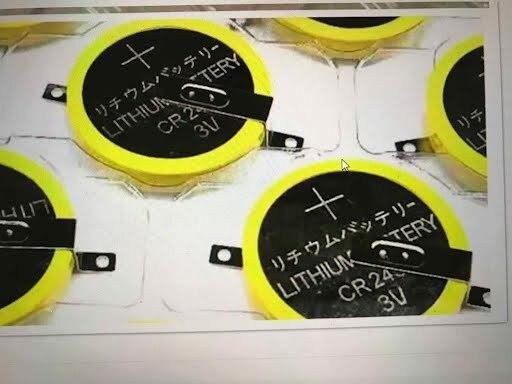 +
リチウムバッテリー
LITHIUM BATTERY
CR24
3V
+
リチウムバッテリー
LITHIUM BATTERY
CR24
3V